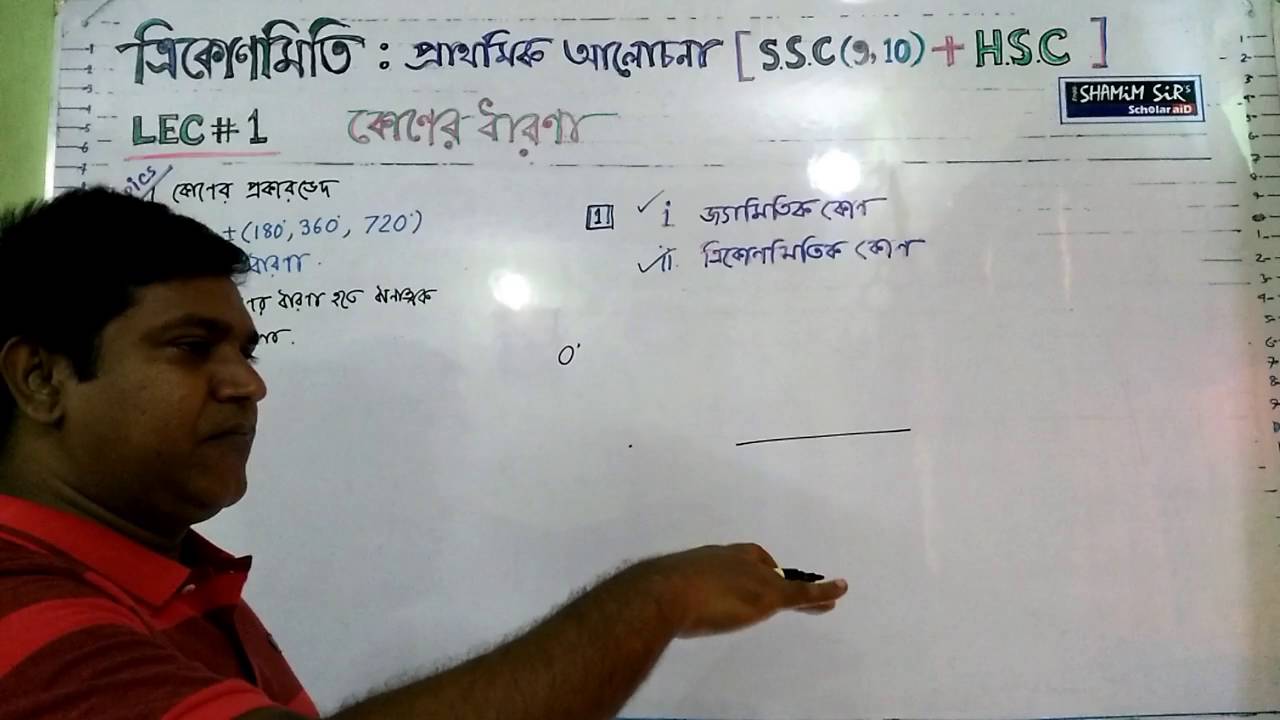 ত্রিকোণমিতি : প্রাথমিক আলোচনা [ S.S.C (9, 10) + H.S.C ]
SHAMiM SiR's
ScholaraiD
LEC # 1 কোণের ধারণা
কোণের প্রকারভেদ
± (180°, 360°, 720°)
ধারণা .
ধারণা হতে
[1] ✓ i জ্যামিতিক কোণ
✓ ii. ত্রিকোনমিতিক কোণ
0°